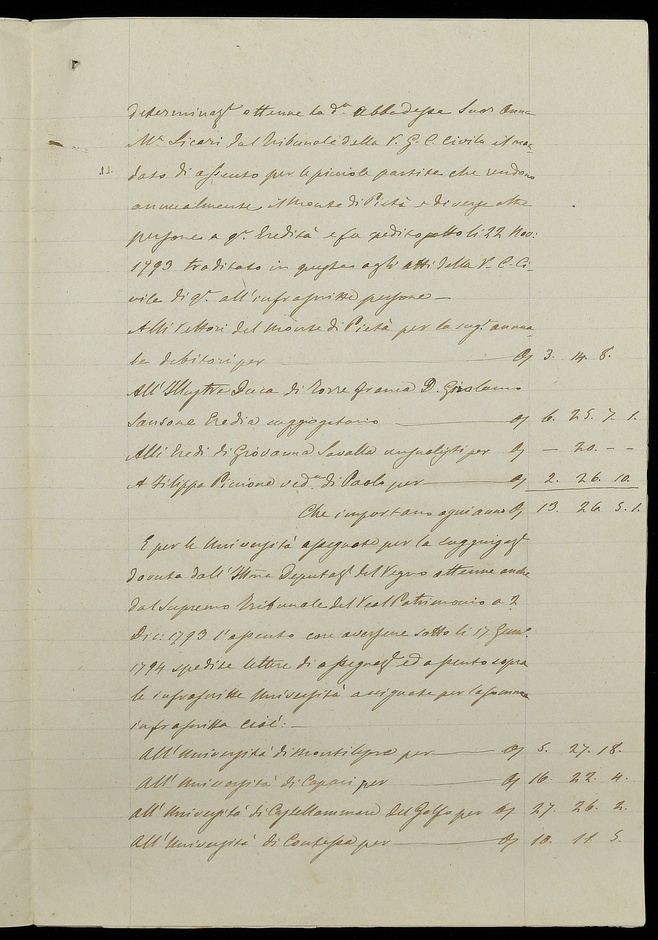 determinaz.e ottenne la d.a Abbadessa Suor Anna
M.a Licari dal Tribunale della R. G. C. Civile il man-
11. dato di assento per le piccole partite che rendono
annualmente il Monte di Pietà e diverse altre
persone a q.a Eredità e fu spedito sotto li 22 Nov:
1793 traditato in questa agli atti della R. C. Ci-
vile di q.a all'infrascritte persone —
Alli Rettori del Monte di Pietà per la sug.e annua
le debitori per — Oz 3. 14. 8.
All'Illustre Duca di Torre franca D. Girolamo
Sansone Eredia suggiogatario — Oz 6. 25. 7. 1.
Alli Eredi di Giovanna Savatta per Oz — 20. — —
A Filippa Piccione ved.a di Paolo per — Oz 2. 26. 10.
Che importano ogni anno Oz 13. 26. 5. 1.
E per le Università assegnate per la suggiugaz.e
dovuta dall'Ill.ma Deputaz.e del Regno ottenne anche
dal Supremo Tribunale del Real Patrimonio a 2
Dic: 1793 l'assento con aversene sotto li 17 Genn.o
1794 spedite lettere di assegnaz.e ed assento sopra
le infrascritte Università assignate per la somma
infrascritta cioè: —
All'Università di Montelepre per — Oz 5. 27. 18.
All'Università di Capaci per — Oz 16. 22. 4.
All'Università di Castellammare del Golfo per Oz 27. 26. 2.
All'Università di Contessa per — Oz 10. 11. 5.